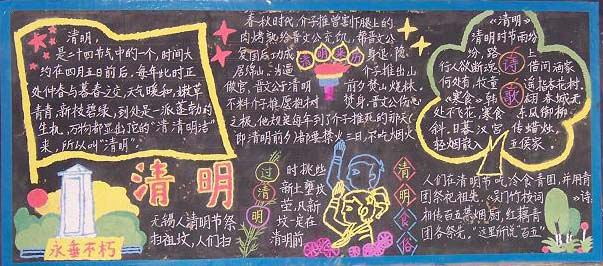 清明，
是二十四节气中的一个，时间大
约在四月五日前后，每年此时正
处仲春与暮春之交，天气暖和，嫩草
青青，新枝碧绿，到处是一派蓬勃的
生机，万物都显出它的"清清明洁"
来，所以叫"清明"。
永垂不朽
清明
无锡人清明节祭
扫祖坟，人们扫
过清明
时挑些
新土壅坟
茔，凡新
坟一定在
清明前
春秋时代，介子推曾割下腿上的
肉烤熟给晋文公充饥，帮晋文公
复国后功成
身退，隐
居绵山。为逼
介子推出山
做官，晋文公于清明
前夕焚山烧林，
不料介子推愿抱树
焚身。晋文公伤心
之极，他规定每年到了介子推死的那天（
即清明前夕）都要禁火三日，不吃烟火
清明来历
《清明》
清明时节雨纷
纷，路上
行人欲断魂。
借问酒家
何处有，牧童
遥指杏花村。
《寒食》韩
翃 春城无
处不飞花，寒食
东风御柳
斜。日暮汉宫
传蜡烛，
轻烟散入
五侯家。
诗歌
清明食俗
人们在清明节吃冷食青团，并用青
团祭祀祖先，吴门竹枝词
祖传百五禁烟厨，红藕青
团各祭先，"这里所说"百五"